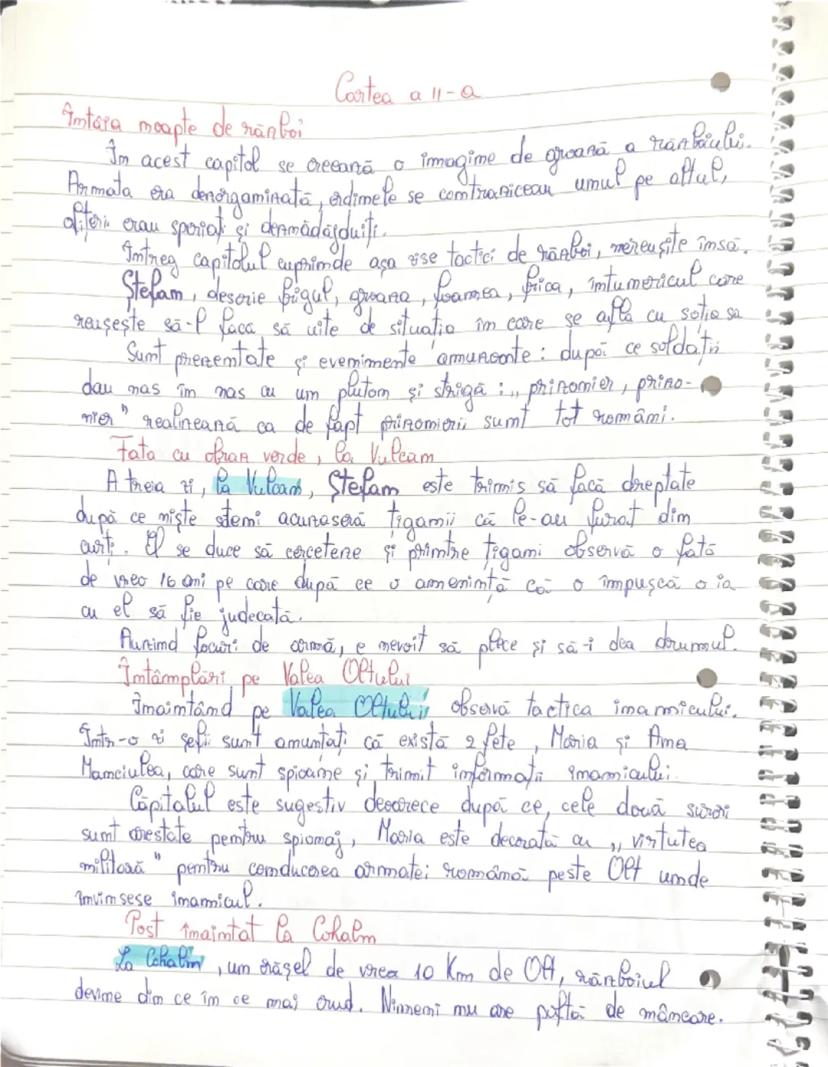 Cartea a II-a
Întâia noapte de război
În acest capitol se creează o imagine de groază a războiului.
Armata era dezorganizată, ordinele se contraziceau unul pe altul,
ofițerii erau speriați și deznădăjduiți.
Întreg capitolul cuprinde așa zise tactici de război, nereușite însă.
Ștefan, descrie frigul, groaza, foamea, frica, întunericul care
reușește să-l facă să uite de situația în care se afla cu soția sa
Sunt prezentate și evenimente amuzante: după ce soldații
dau nas în nas cu un pluton și strigă: „prizonier, prizo-
nier" realizează ca de fapt prizonierii sunt tot români.
Fata cu obraz verde, la Vulcan
A treia zi, la Vulcan, Ștefan este trimis să facă dreptate
după ce niște steni acuzaseră țiganii că le-au furat din
curți. El se duce să cerceteze și printre țigani observă o fată
de vreo 16 ani pe care după ce o amenință că o împușcă o ia
cu el să fie judecată.
Auzind focuri de armă, e nevoit să plece și să-i dea drumul.
Întâmplări pe Valea Oltului
Înaintând pe Valea Oltului observă tactica inamicului.
Într-o zi șefii sunt anunțați că există 2 fete, Maria și Ana
Manciulea, care sunt spioane și trimit informații inamicului.
Capitolul este sugestiv deoarece după ce, cele două surori
sunt arestate pentru spionaj, Maria este decorată cu „virtutea
militară" pentru conducerea armatei română peste Olt unde
învinsese inamicul.
Post înaintat la Cohalm
La Cohalm, un orășel de vreo 10 Km de Olt, războiul
devine din ce în ce mai crud. Nimeni nu are poftă de mâncare.